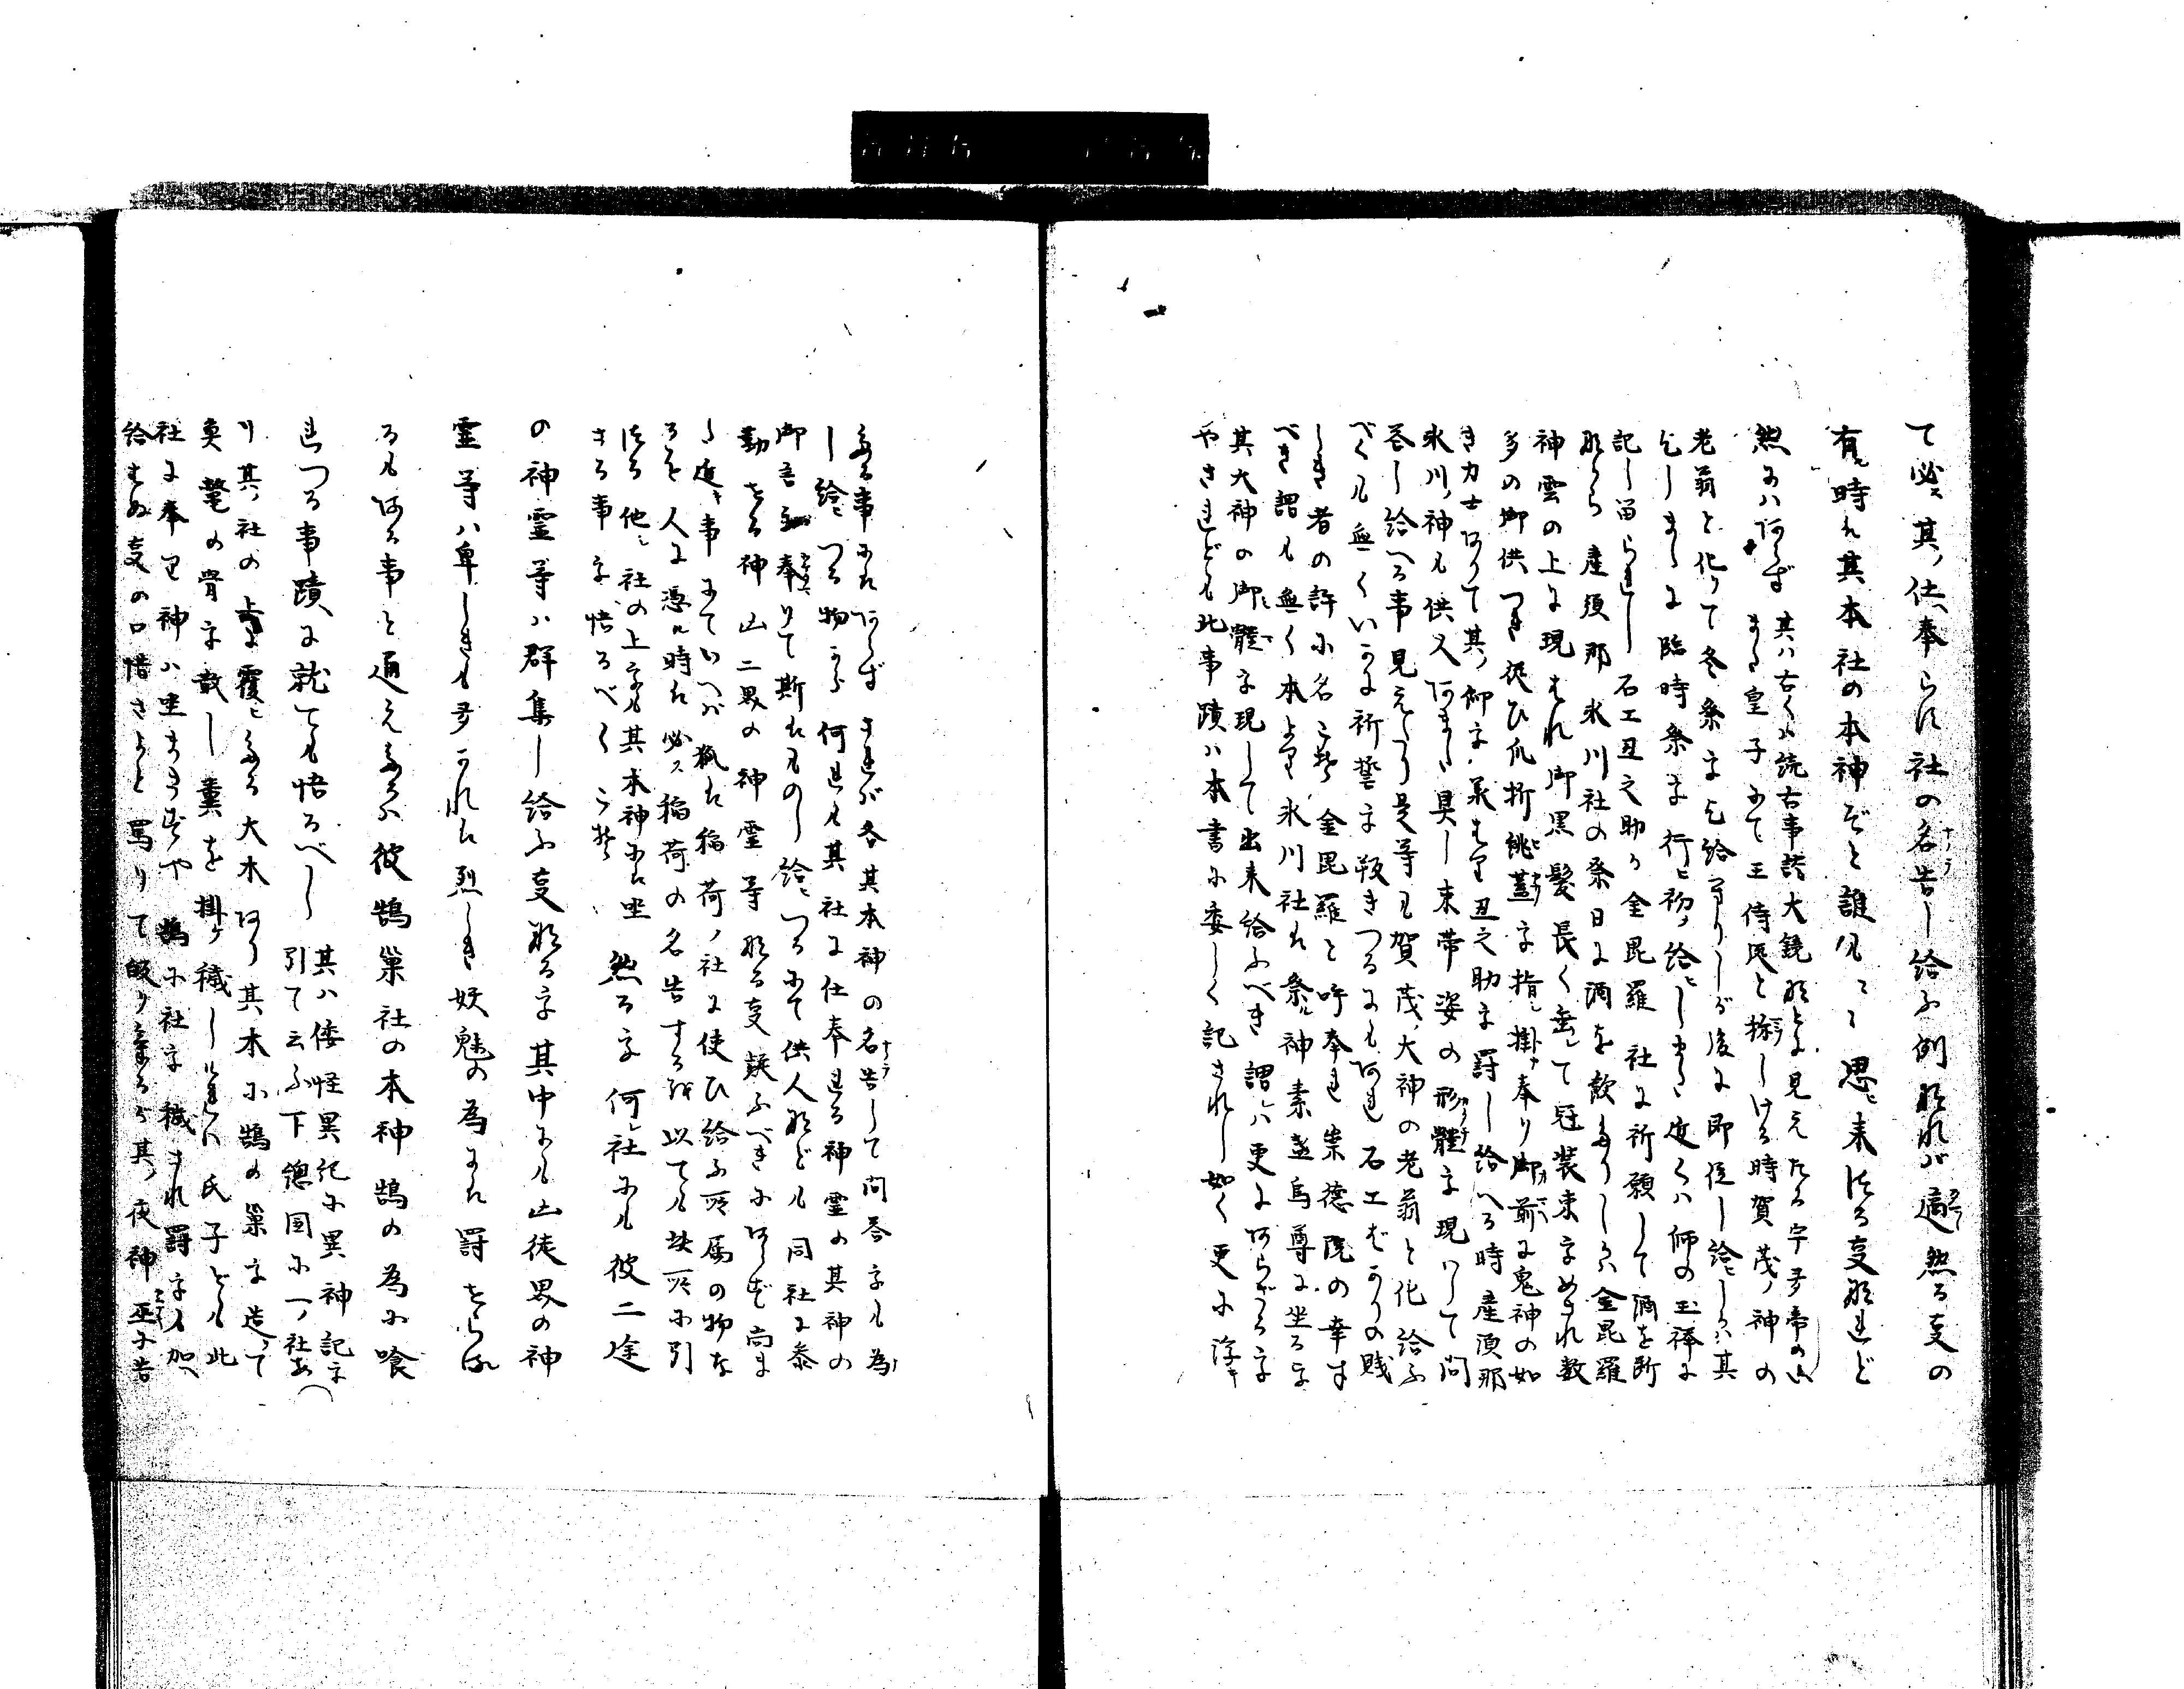 て必ス其ノ仕奉られ社の名告し給ふ例なれバ適然る支の
有ル時は其本社の本神ぞと誰しも思ヒ来れる支なれど
然にハあらず 其ハ古くは続古事談大鏡などに見えたる宇多帝の
また皇子にて王侍従と称しける時賀茂ノ神の
老翁と化りて冬祭を乞給ありしが後に即位し給ヒしかハ其
乞しまゝに臨時祭を行ヒ初メ給ヒしまた近くハ師の玉襷に
記し留られし石工丑之助が金毘羅社に祈願して酒を断
ながら産須那氷川社の祭日に酒を飲たりしかハ金毘羅
神雲の上に現はれ御黒髪長く垂して冠装束をめされ数
多の御供つき従ひ爪折傘を指シ掛ケ奉り御前に鬼神の如
き力士ありて其ノ仰を承はり丑之助を罰し給へる時産須那
氷川ノ神も供人あまた具し束帯姿の形體を現はして問
答し給へる事見えたり是等も賀茂ノ大神の老翁と化給ふ
べくも無くいかに祈誓を破きつるにもあれ石工ばかりの賎
しき者の許に名こそ金毘羅と呼奉れ崇徳院の幸す
べき謂も無く本より氷川社は祭ル神素盞烏尊に坐るを
其大神の御體を現して出来給ふべき謂ハ更にあらざるを
やされども此事蹟ハ本書に委しく記されし如く更に浮キ
たる事にはあらず されバ各其本神の名告して問答をも為
し給ヒつる物から何れも其社に仕奉れる神霊の其神の
御言奉りて斯はものし給ヒつるにて供人なども同社に奉
勤せる神山二界の神霊等なる支疑ふべきにあらず尚ま
た近キ事にていへバ狐は稲荷ノ社に使ひ給ふ所属の物な
るを人に憑ル時は必ス稲荷の名告するを以ても然所に引
れる他ノ社の上をも其本神には坐
さる事を悟るべくこそ 然るを何レ社にも彼二途
の神霊等ハ群集し給ふ支なるを其中にも山徒界の神
霊等ハ卑しきも多かれは烈しき妖魅の為には罰せらる
るもある事と通えたるハ彼鵠巣社の本神鵠の為に喰
れつる事蹟に就ても悟るべし 其ハ倭怪異記に異神記を
引て云ふ下総国に一ノ社あ
り其ノ社の上に覆ヒたる大木あり其木に鵠の巣を造ッて
魚鼈の骨を散し糞を掛ケ穢しければ氏子ども此
社に奉る神ハ坐まさずや鵠に社を穢され罰をも加へ
給はぬ支の口惜さよと罵りて帰りけるが其ノ夜神巫に告